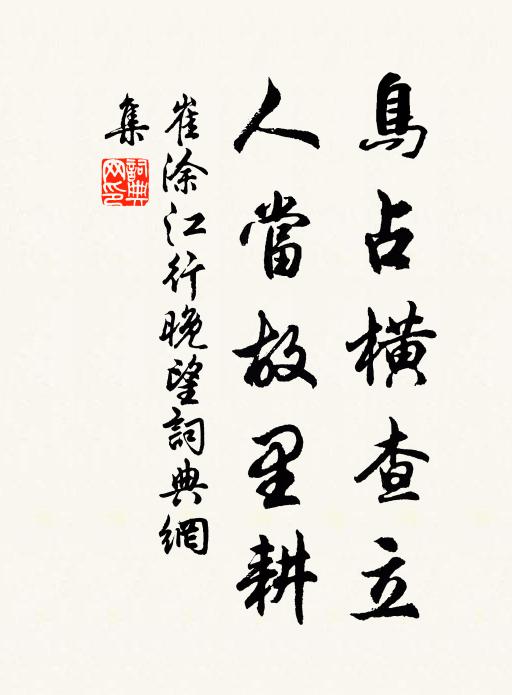 鳥占橫查立
人當故里耕
崔涂江行晚望詞典網
集
詞典網印